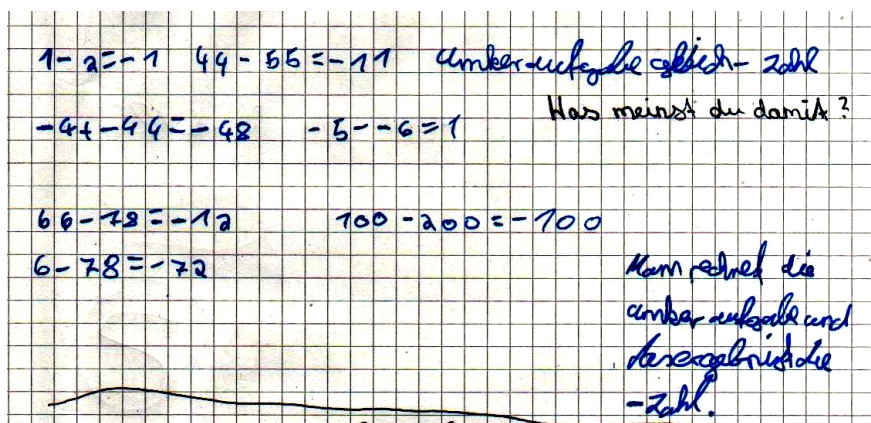 1-2=-1 44-55=-11 umker-aufgabe gleich - zahl
Was meinst du damit?
-4+-44=-48 -5--6=1
66-78=-12 100-200=-100
6-78=-72 Mann rechnet die
umker-aufgabe und
das ergebnis ist die
-zahl.